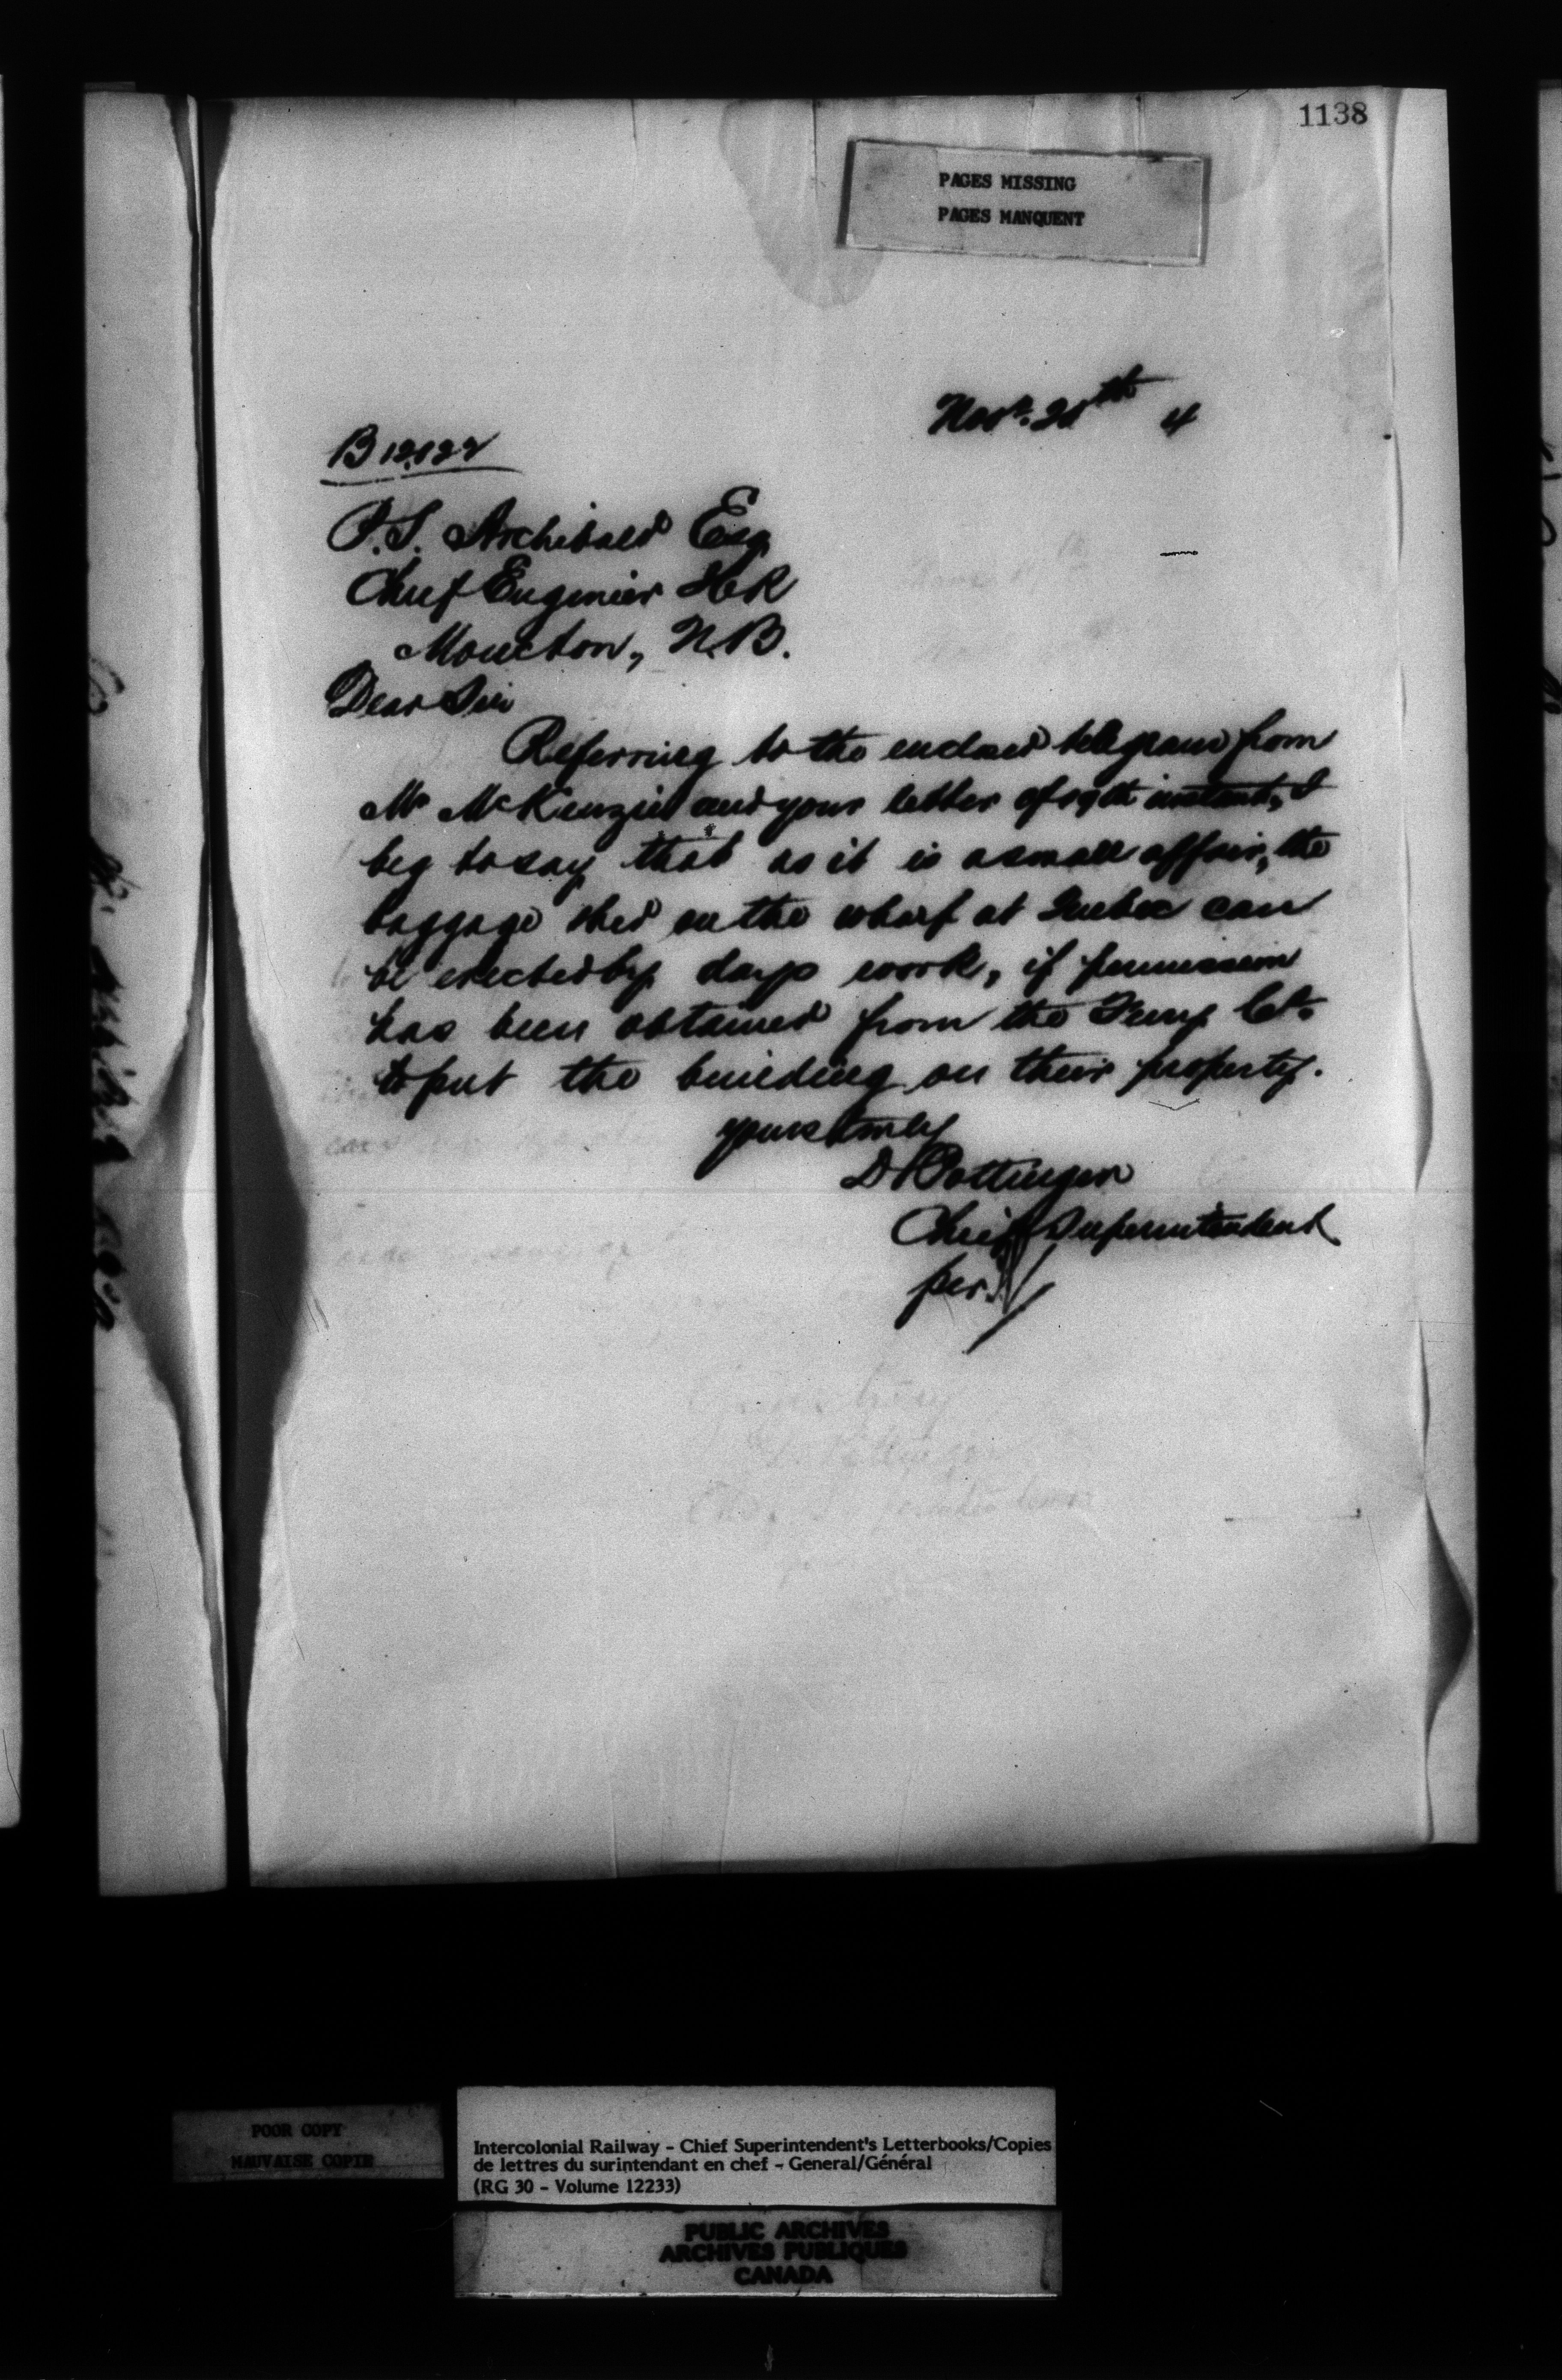 1138
PAGES MISSING
PAGES MANQUENT
Novr. 20th 4
B 12,122
P.S. Archibald Esq
Chief Engineer ICR
Moncton, N.B.
Dear Sir
Referring to the enclosed telegram from
Mr McKenzie and your letter of 19th instant, I
beg to say that as it is a small affair, the
baggage shed on the wharf at Quebec can
be erected by days work, if permission
has been obtained from the Ferry Co.
to put the building on their property.
yours truly
D Pottinger
Chief Superintendent
per
POOR COPY
MAUVAISE COPIE
Intercolonial Railway - Chief Superintendent's Letterbooks/Copies
de lettres du surintendant en chef - General/Général
(RG 30 - Volume 12233)
PUBLIC ARCHIVES
ARCHIVES PUBLIQUES
CANADA